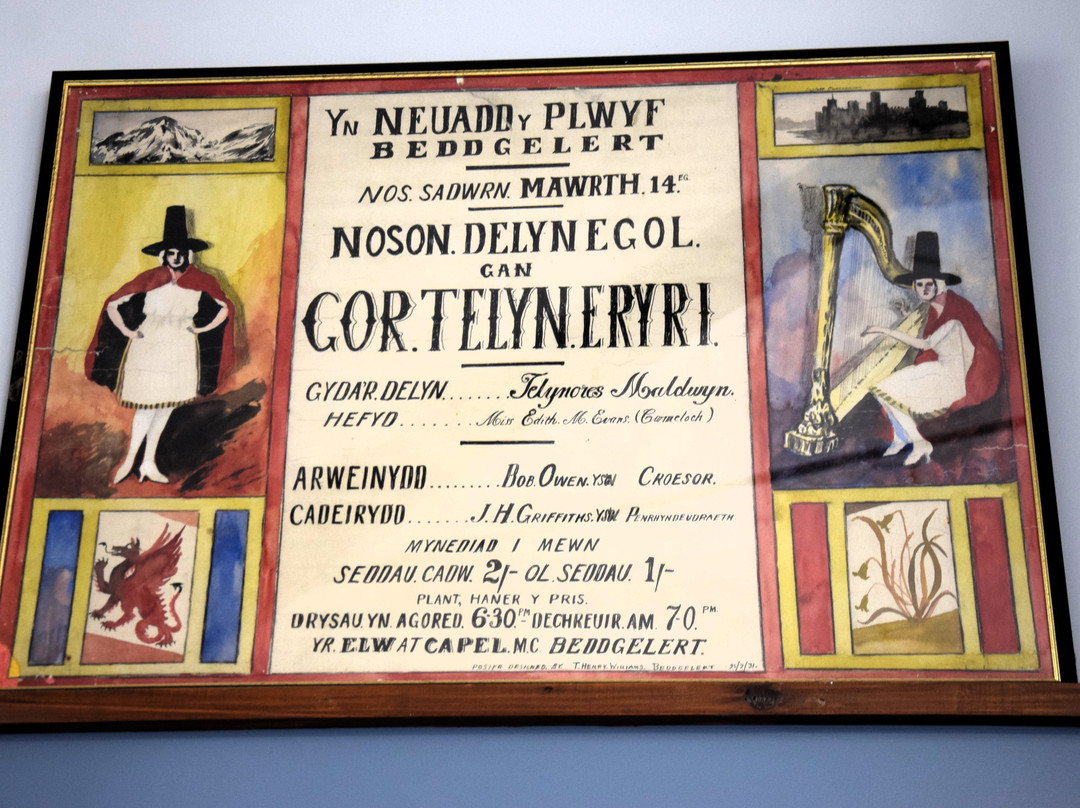 Yn NEUADD y PLWYF
BEDDGELERT
NOS. SADWRN. MAWRTH. 14.EG.
NOSON. DELYNEGOL.
GAN
GOR. TELYN. ERYRI.
GYDA'R. DELYN....... Telynores Maldwyn.
HEFYD........ Miss Edith. M. Evans. (Curmeloch)
ARWEINYDD......... BOB. OWEN. YSW CROESOR.
CADEIRYDD....... J. H. GRIFFITHS. YSW PENRHYNDEUDRAETH
MYNEDIAD I MEWN
SEDDAU. CADW. 2/- OL. SEDDAU. 1/-
PLANT, HANER Y PRIS.
DRYSAU. YN. AGORED. 6·30.PM- DECHREUIR. AM. 7·0.PM.
YR. ELW AT CAPEL. M.C BEDDGELERT.
POSTER DESIGNED. BY. T. HENRY. WILLIAMS. BEDDGELERT 21/2/31.